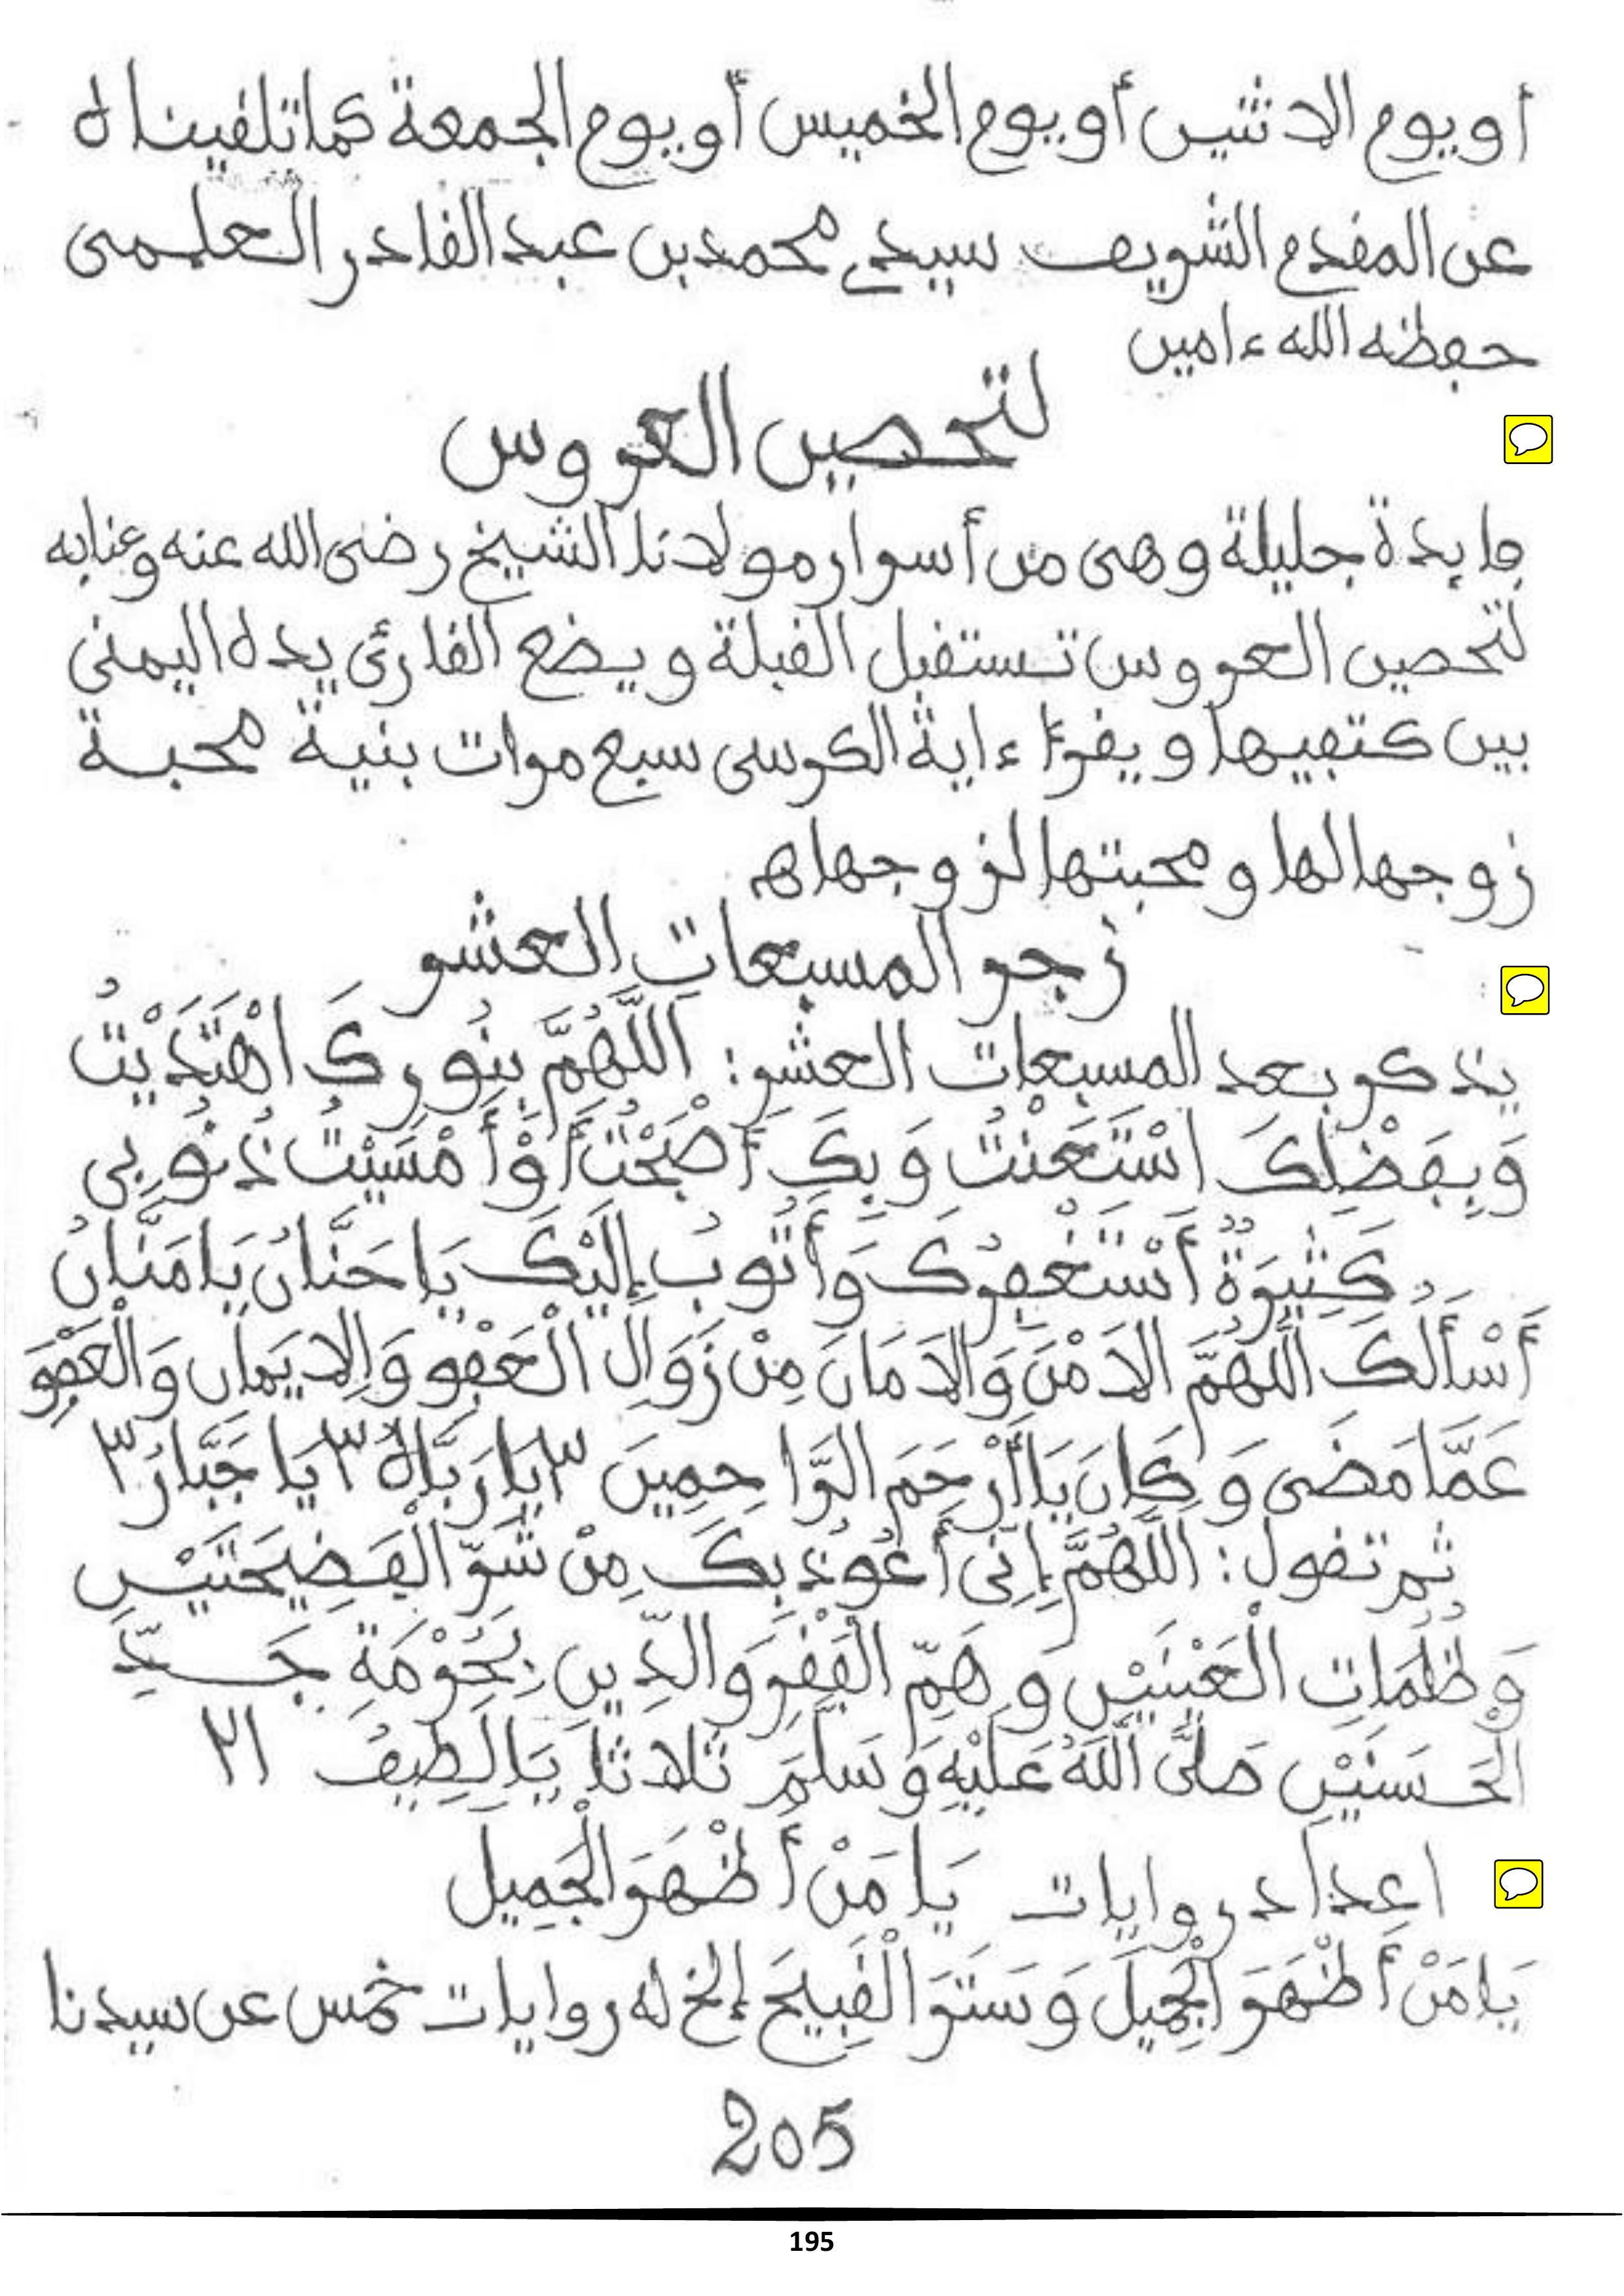 أو يوم الاثنين أو يوم الخميس أو يوم الجمعة كما تلقيناه
عن المقدم الشريف سيدي محمد بن عبد القادر العلمى
حفظه الله ءامين
لتحصين العروس
فايدة جليلة وهى من أسرار مولانا الشيخ رضى الله عنه وعنابه
لتحصين العروس تستقبل القبلة ويضع القارئ يده اليمنى
بين كتفيها ويقرأ ءاية الكرسى سبع مرات بنية محبة
زوجها لها ومحبتها لزوجها اهـ
زجر المسبعات العشر
يذكر بعد المسبعات العشر: اَللَّهُمَّ بِنُورِكَ اهْتَدَيْتُ
وَبِفَضْلِكَ اسْتَعَنْتُ وَبِكَ أَصْبَحْتُ أَوْ أَمْسَيْتُ ذُنُوبِى
كَثِيرَةٌ أَسْتَغْفِرُكَ وَأَتُوبُ إِلَيْكَ يَا حَنَّانُ يَا مَنَّانُ
أَسْأَلُكَ اللَّهُمَّ الاَمْنَ وَالاَمَانَ مِنْ زَوَالِ الْعَفْوِ وَالِايمَانِ وَالْعَفْوَ
عَمَّا مَضَى وَكَانَ يَا أَرْحَمَ الرَّاحِمِينَ ٣ يَا رَبَّاهُ ٣ يَا جَبَّارُ ٣
ثم تقول: اَللَّهُمَّ إِنِّى أَعُوذُ بِكَ مِنْ شَرِّ الْفَضِيحَتَيْنِ
وَظُلُمَاتِ الْعَيْنَيْنِ وَهَمِّ الْفَقْرِ وَالدِّينِ بِحُرْمَةِ جَدِّ
الْحَسَنَيْنِ صَلَّى اللَّهُ عَلَيْهِ وَسَلَّمَ ثلاثا يَا لَطِيفُ ٢١
اعداد روايات يَا مَنْ أَظْهَرَ الْجَمِيلَ
يَا مَنْ أَظْهَرَ الْجَمِيلَ وَسَتَرَ الْقَبِيحَ إلخ له روايات خمس عن سيدنا
205
195